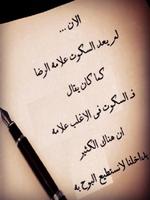 الان ...
لم يعد السكوت علامه الرضا
كما كان يقال
فـ السكوت في الاغلب علامه
ان هناك الكثير
بداخلنا لا نستطيع البوح به